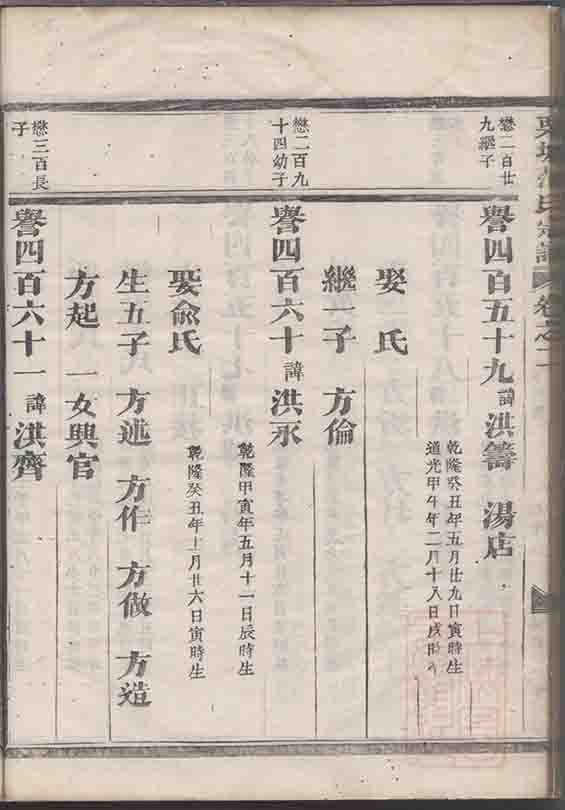 宗譜 卷之二
懋二百廿
九繼子
譽四百五十九諱洪籌 湯店
乾隆癸丑年五月廿九日寅時生
道光甲午年二月十八日戌時
娶 氏
繼一子 方倫
懋二百九
十四幼子
譽四百六十諱洪永
乾隆甲寅年五月十一日辰時生
娶俞氏
乾隆癸丑年十一月廿六日寅時生
生五子 方述 方作 方做 方造
方起 一女興官
懋三百長
子
譽四百六十一諱淇齊